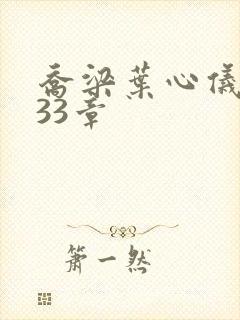 乔梁葉心儀
33章
箫一然